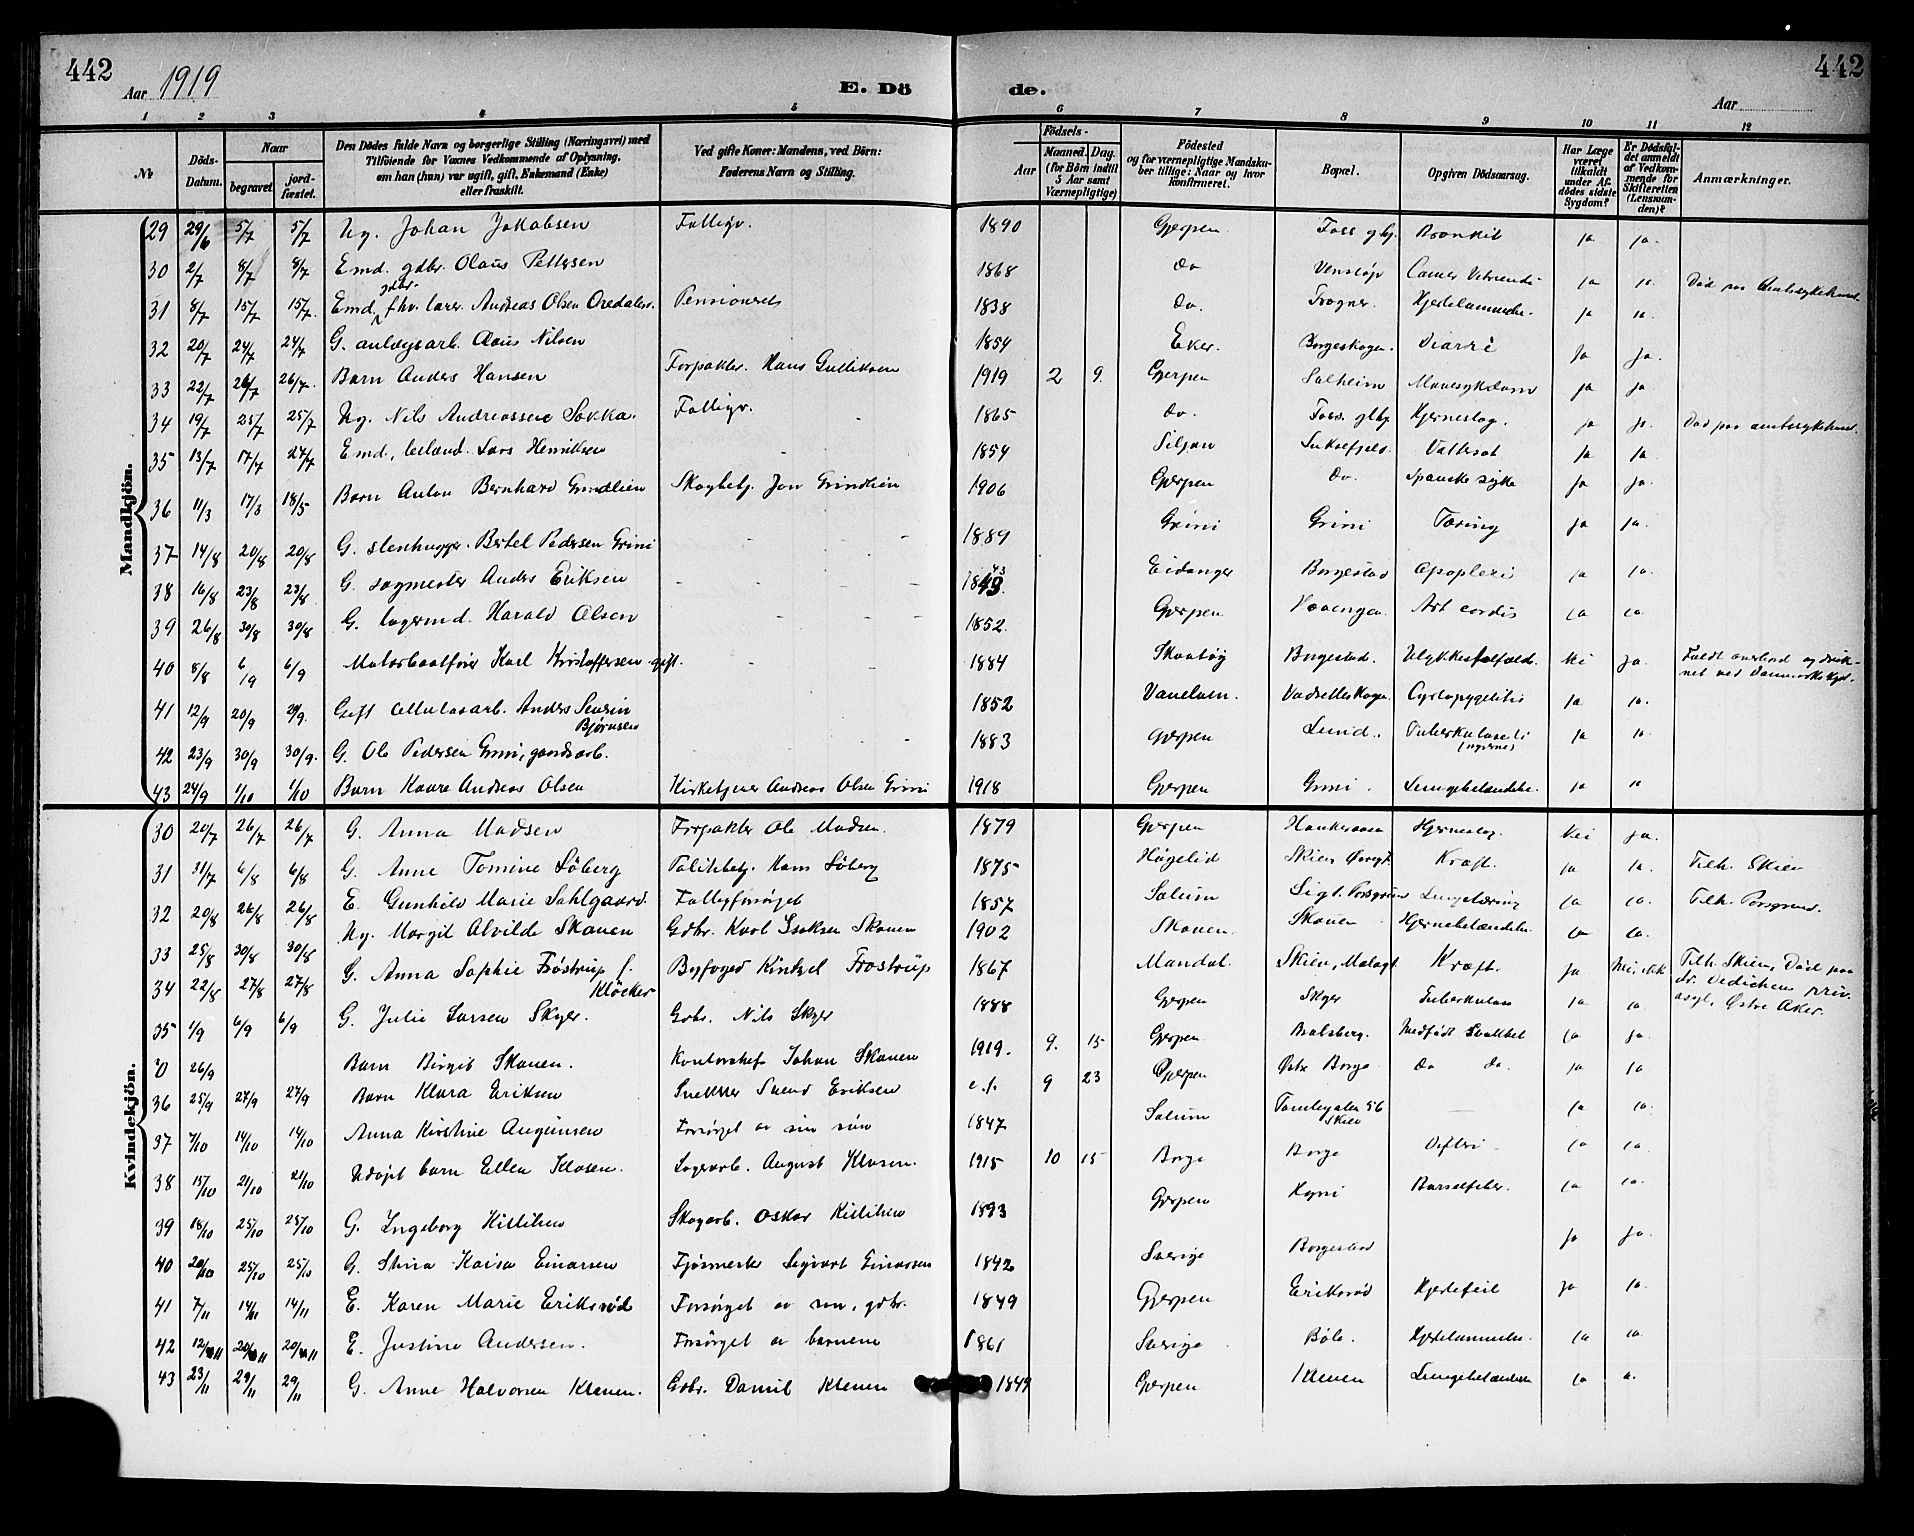 442
Aar 1919
E. Dö
de.
442
Aar
1 2 3 4 5 6 7 8 9 10 11 12
No
Döds-Datum.
Naar
begravet
jord-fæstet.
Den Dödes fulde Navn og borgerlige Stilling (Næringsvei) med
Tilföiende for Voxnes Vedkommende af Oplysning,
om han (hun) var ugift, gift, Enkemand (Enke)
eller fraskilt.
Ved gifte Koner: Mandens, ved Börn:
Faderens Navn og Stilling.
Födsels-
Aar
Maaned. Dag.
(for Börn indtil
5 Aar samt
Værnepligtige)
Födested
og for værnepligtige Mandsku-
ber tillige: Naar og hvor
konfirmeret.
Bopæl.
Opgiven Dödsaarsag.
Har Læge
været
tilkaldt
under Af-
dödes sidste
Sygdom?
Er Dödsfal-
det anmeldt
af Vedkom-
mende for
Skifteretten
(Lensman-
den)?
Anmærkninger.
Mandkjön.
29 29/6 5/7 5/7 Ug. Johan Jakobsen Fattigv. 1890 Gjerpen Foss gbg. Bronkit ja ja.
30 2/7 8/7 8/7 Emd. gdbr. Olaus Pettersen 1868 do Venstøp Cancer ja ja. Død paa Amtssykehuset
31 8/7 15/7 15/7. Emd. gdbr. fhv. lærer Andreas Olsen Pensionert 1838 do. Frogner. Hjertelammelse. ja ja.
32 20/7 24/7 24/7 G. anlægsarb. Olaus Nilsen 1854 Eker. Borgeskogen. Diarré ja ja.
33 22/7 26/7 26/7. Barn Anders Hansen Forpakter. Hans Gulliksen 1919 2 9. Gjerpen Solheim Mavesykdom ja ja.
34 19/7 25/7 25/7 Ug. Nils Andreassen Løkka. Fattigv. 1865 do. Foss. glbg. Hjerneslag. ja ja. Død paa amtssykehuset.
35 13/7 17/7 27/7 Emd, Lars Henriksen 1854 Siljan Vattersot ja ja
36 11/3 17/3 18/5 Barn Anton Bernhard Grindlien Skogbetj. Jon Grindlien 1906 Gjerpen do. Spanske syke ja ja.
37 14/8 20/8 20/8 G. stenhugger. Bertel Pedersen Grini 1889 Grini Grini Tæring ja ja.
38 16/8 23/8 23/8 G. sagmester Anders Eriksen 1843 Eidanger Borgestad Apoplexi ja ja.
39 26/8 30/8 30/8 G. lagermd. Harald Olsen 1852. Gjerpen Art cordis ja ja.
40 8/8 6/9 6/9 Motorbaatfører Karl Kristoffersen gift. 1884 Skaatøy Borgestad. Ulykkestilfælde. Nei ja. Faldt overbord og druk-
net ved Danmarks kyst.
41 12/9 20/9 20/9. Gift cellulosarb. Anders Severin
Bjørnsen 1852 Vadretteskogen Cystopyelitis ja ja.
42 23/9 30/9 30/9. G. Ole Pedersen Grini, gaardsarb. 1883 Gjerpen Lund. Tuberkulose
(nyrene) ja ja
43 24/9 1/10 1/10 Barn Kaare Andreas Olsen Kirketjener Andreas Olsen Grini 1918 Gjerpen Grini. Lungebetændelse. ja ja
Kvindekjön.
30 20/7 26/7 26/7 G. Anna Madsen Forpakter Ole Madsen. 1879 Gjerpen Haukeraasen Hjerneslag. Nei ja.
31 31/7 6/8 6/8 G. Anne Tomine Løberg Politibetj. Hans Løberg 1875 Høgelid Skien Kræft. ja ja. Tilh. Skien
32 20/8 26/8 26/8 E. Gunhild Marie Dahlgaard. Fattigforsørget 1857 Solum Porsgrund Lungetæring ja ja. Tilh. Porsgrund.
33 25/8 30/8 30/8 Ug. Margit Alvilde Skauen Gdbr. Karl Isaksen Skauen 1902 Skauen. Skauen Hjernebetændelse ja ja.
34 22/8 27/8 27/8 G. Anna Sophie Frøstrup f.
Kløcker Byfoged Kintzel Frøstrup 1867 Mandal. Skien, Kræft. ja Nei, Tilh. Skien, Død paa
Dr. Dedichens priv.
asyl, Østre Aker.
35 1/9 6/9 6/9 G. Julie Larsen Skyer. Gdbr. Nils Skyer 1888 Gjerpen Skyer Tuberkulose ja ja
0 26/9 Barn Birgit Skauen. Kontorchef Johan Skauen 1919. 9. 15 Gjerpen Bratsberg. Medfødt svakhet ja ja.
36 25/9 27/9 27/9 Barn Klara Eriksen Snekker Svend Eriksen 9 23 Gjerpen Østre Borge do do. ja ja
37 7/10 14/10 14/10 Anna Kirstine Forsørget av sin søn 1847 Solum 56
Skien ja ja.
38 15/10 21/10 21/10 Udøpt barn Ellen Klasen. Lagerarb. August Klasen. 1915 10 15 Borge Borge Difteri ja ja
39 18/10 25/10 25/10 G. Ingeborg Kittilsen Skogarb. Oskar Kittilsen 1893 Gjerpen Hyni Barselfeber. ja ja.
40 20/10 25/10 25/10 G. Stina Kaisa Einarsen Fjøsmester Sigvart Einarsen 1842 Sverige Borgestad ja ja.
41 7/11 14/11 14/11 E. Karen Marie Eriksrød Forsørget av søn, gdbr. 1849 Gjerpen Eriksrød Hjertefeil ja ja.
42 12/11 20/11 20/11 E. Justine Andersen. Forsørget av barnene 1861 Sverige Bøle. Hjertelammelse. ja ja.
43 23/11 29/11 29/11 G. Anne Halvorsen Kleven. Gdbr. Daniel Kleven 1849 Gjerpen Kleven Lungebetændelse ja ja.